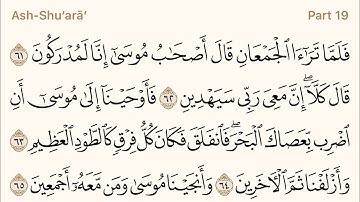 Ash-Shu‘arā’ Part 19
فَلَمَّا تَرَٰٓءَا ٱلْجَمْعَانِ قَالَ أَصْحَٰبُ مُوسَىٰٓ إِنَّا لَمُدْرَكُونَ ٦١
قَالَ كَلَّآ ۖ إِنَّ مَعِىَ رَبِّى سَيَهْدِينِ ٦٢ فَأَوْحَيْنَآ إِلَىٰ مُوسَىٰٓ أَنِ
ٱضْرِب بِّعَصَاكَ ٱلْبَحْرَ ۖ فَٱنفَلَقَ فَكَانَ كُلُّ فِرْقٍ كَٱلطَّوْدِ ٱلْعَظِيمِ ٦٣
وَأَزْلَفْنَا ثَمَّ ٱلْءَاخَرِينَ ٦٤ وَأَنجَيْنَا مُوسَىٰ وَمَن مَّعَهُۥٓ أَجْمَعِينَ ٦٥